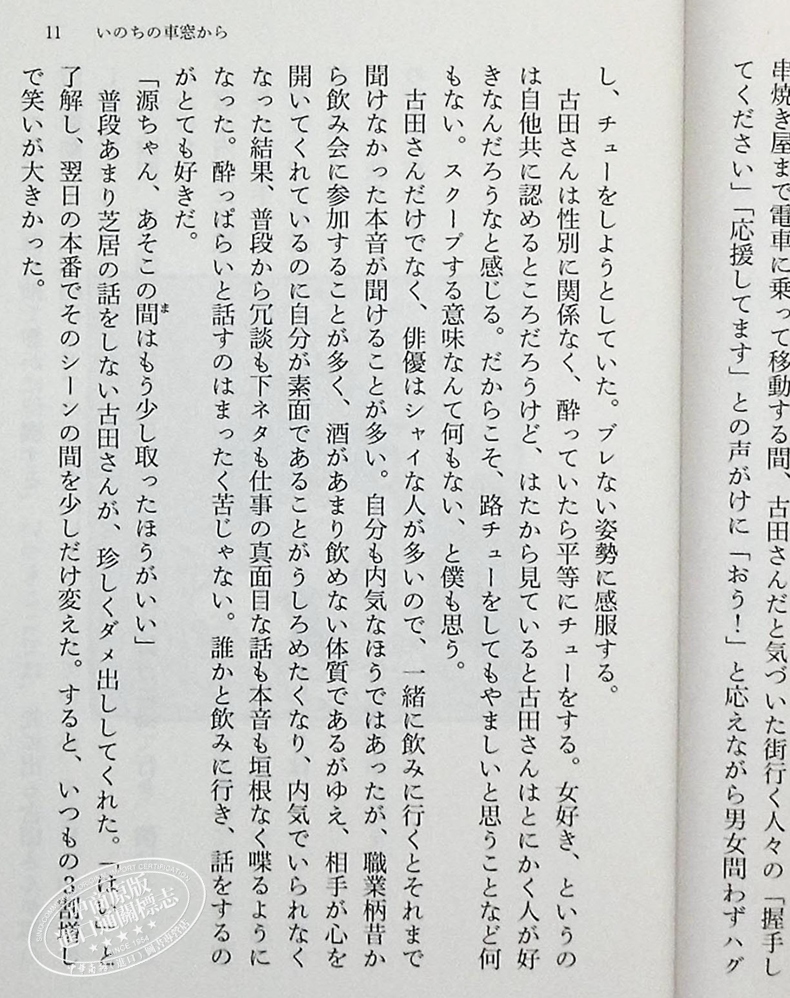 串焼き屋まで電車に乗って移動する間、古田さんだと気づいた街行く人々の「握手し
てください」「応援してます」との声がけに「おう！」と応えながら男女問わずハグ
11 いのちの車窓から
し、チューをしようとしていた。ブレない姿勢に感服する。
古田さんは性別に関係なく、酔っていたら平等にチューをする。女好き、というの
は自他共に認めるところだろうけど、はたから見ていると古田さんはとにかく人が好
きなんだろうなと感じる。だからこそ、路チューをしてもやましいと思うことなど何
もない。スクープする意味なんて何もない、と僕も思う。
古田さんだけでなく、俳優はシャイな人が多いので、一緒に飲みに行くとそれまで
聞けなかった本音が聞けることが多い。自分も内気なほうではあったが、職業柄昔か
ら飲み会に参加することが多く、酒があまり飲めない体質であるがゆえ、相手が心を
開いてくれているのに自分が素面であることがうしろめたくなり、内気でいられなく
なった結果、普段から冗談も下ネタも仕事の真面目な話も本音も垣根なく喋るように
なった。酔っぱらいと話すのはまったく苦じゃない。誰かと飲みに行き、話をするの
がとても好きだ。
「源ちゃん、あそこの間はもう少し取ったほうがいい」
ま
普段あまり芝居の話をしない古田さんが、珍しくダメ出ししてくれた。「はい」と
了解し、翌日の本番でそのシーンの間を少しだけ変えた。すると、いつもの3割増し
で笑いが大きかった。
中面原版